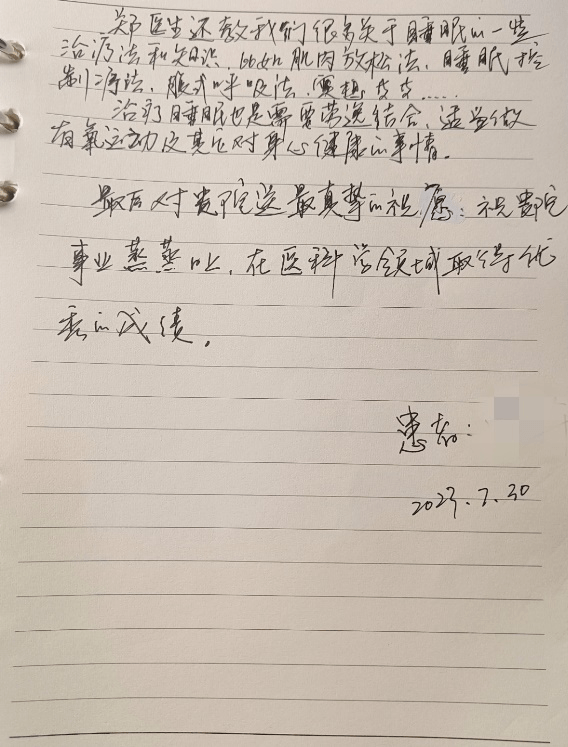 郑医生还教我们很多关于睡眠的一些
治疗法和知识，比如肌肉放松法，睡眠控
制疗法，腹式呼吸法，冥想等等……
治疗睡眠也是需要劳逸结合，适当做
有氧运动及其它对身心健康的事情。
最后对贵院送最真挚的祝愿：祝贵院
事业蒸蒸日上，在医科学领域取得优
秀的成绩。
患者：
2023.7.30